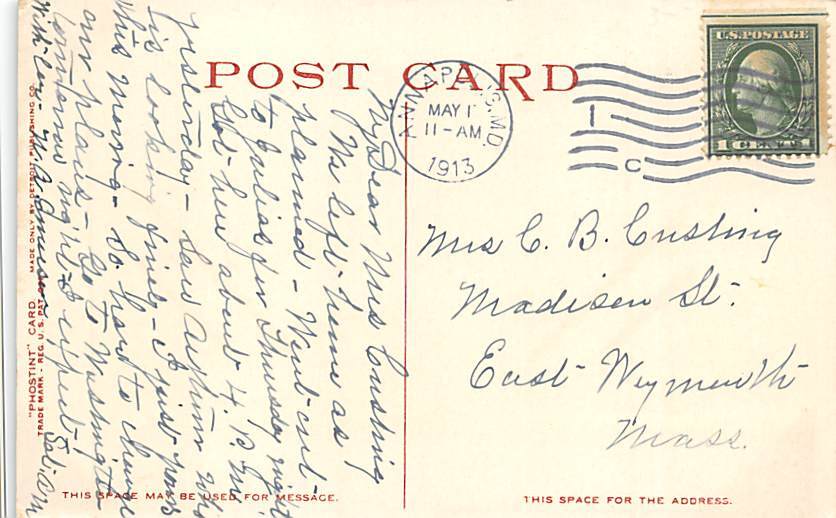 POST CARD
ANNAPOLIS, MD.
MAY 1
11-AM
1913
1
C
U.S. POSTAGE
1 CENT 1
My Dear Mrs Cushing
We left home as
planned - Went out
to Julias for Thursday night
Got here about 4. P. M.
yesterday - Saw Arthur who
is looking finely - It just pours
this morning - So have to change
our plans - Go to Washington
tomorrow night I expect,
With love
Sat. A M
Mrs C. B. Cushing
Madison St.
East Weymouth
Mass.
"PHOSTINT" CARD
TRADE MARK - REG. U. S. PAT.
MADE ONLY BY DETROIT PUBLISHING CO.
THIS SPACE MAY BE USED FOR MESSAGE.
THIS SPACE FOR THE ADDRESS.